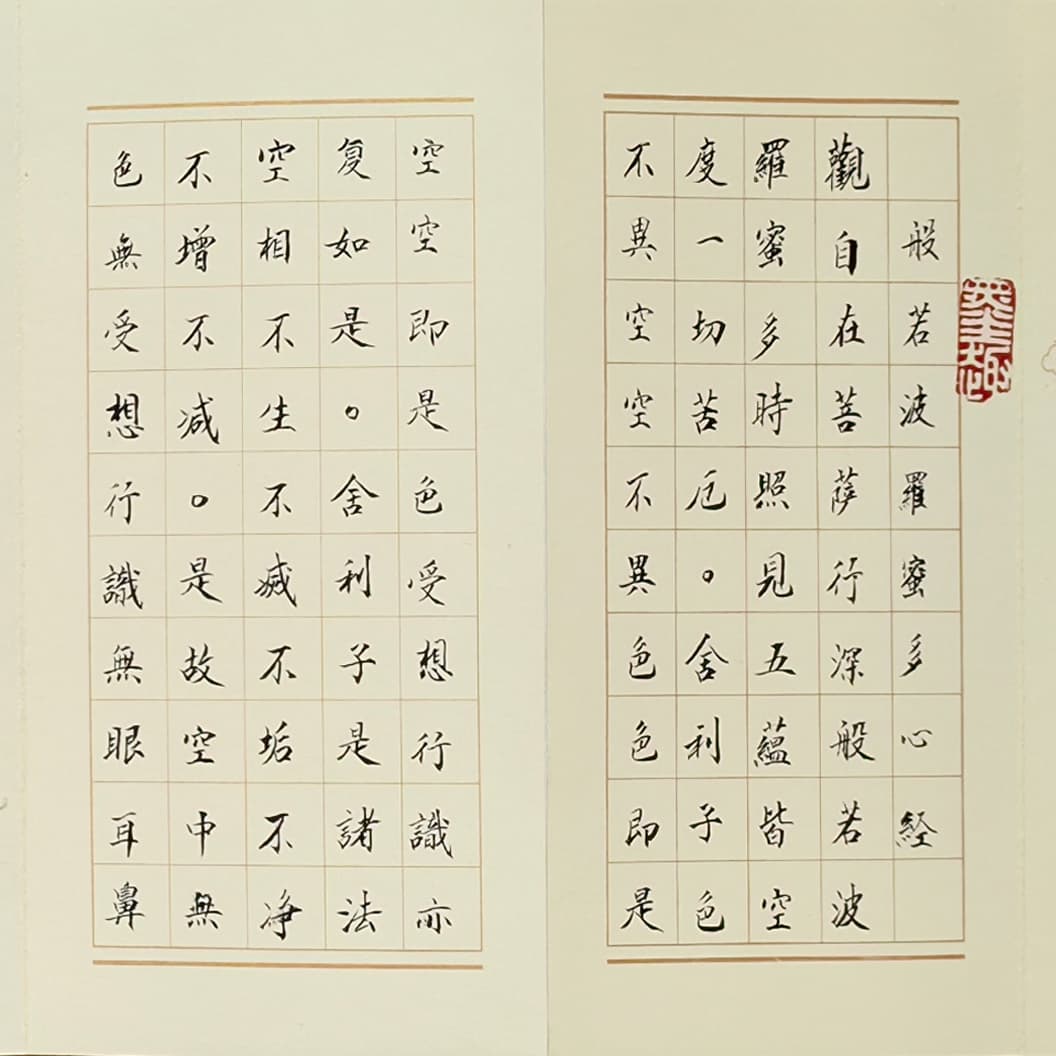 般若波羅蜜多心経
觀自在菩薩行深般若波
羅蜜多時照見五蘊皆空
度一切苦厄。舍利子色
不異空空不異色色即是
空空即是色受想行識亦
复如是。舍利子是諸法
空相不生不滅不垢不净
不增不减。是故空中無
色無受想行識無眼耳鼻